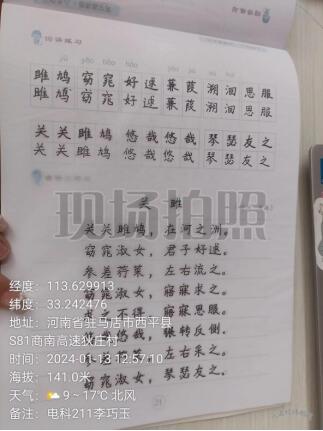 词语练习
雎鸠 窈窕 好逑 蒹葭 溯洄 思服
雎鸠 窈窕 好逑 蒹葭 溯洄 思服
关关雎鸠 悠哉悠哉 琴瑟友之
关关雎鸠 悠哉悠哉 琴瑟友之
关雎
现场拍照
关关雎鸠，在河之洲。
窈窕淑女，君子好逑。
参差荇菜，左右流之。
窈窕淑女，寤寐求之。
求之不得，寤寐思服。
悠哉悠哉，辗转反侧。
参差荇菜，左右采之。
窈窕淑女，琴瑟友之。
经度：113.629913
纬度：33.242476
地址：河南省驻马店市西平县
S81商南高速狄庄村
时间：2024-01-13 12:57:10
海拔：141.0米
天气：9~17℃ 北风
备注：电科211李巧玉
21